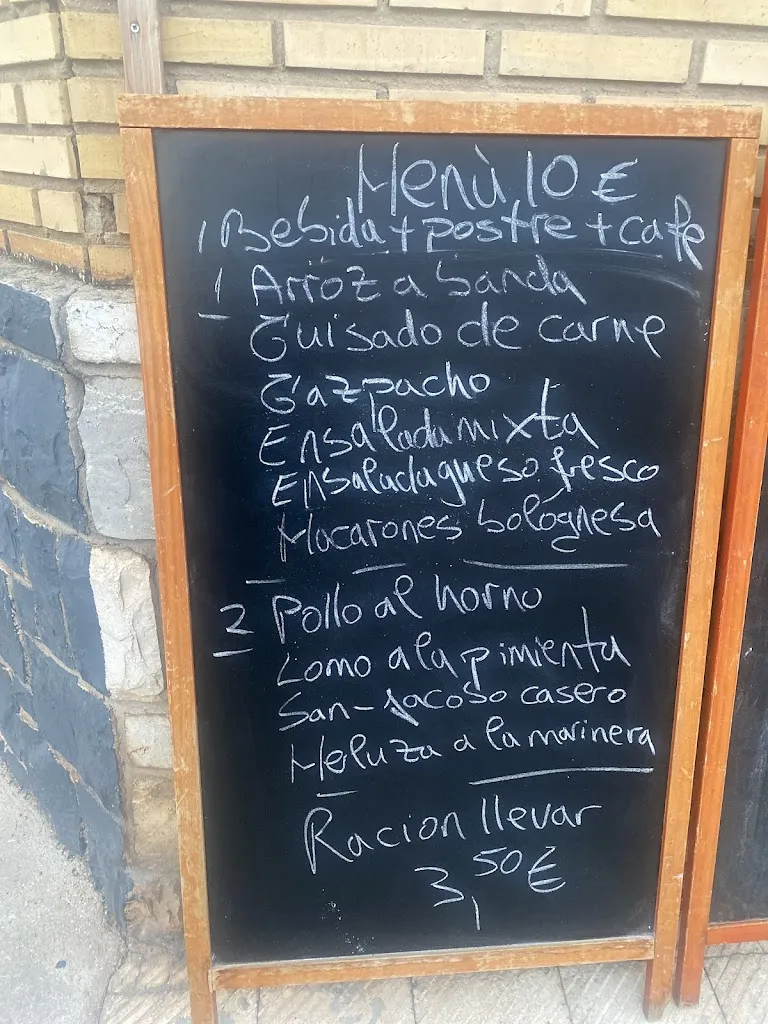 Menù 10 €
1 Bebida + postre + cafe
1 Arroz a banda
Guisado de carne
Gazpacho
Ensalada mixta
Ensalada queso fresco
Macarones bológnesa
2 Pollo al horno
Lomo a la pimienta
San-Jacoso casero
Merluza a la marinera
Racion llevar
3,50 €